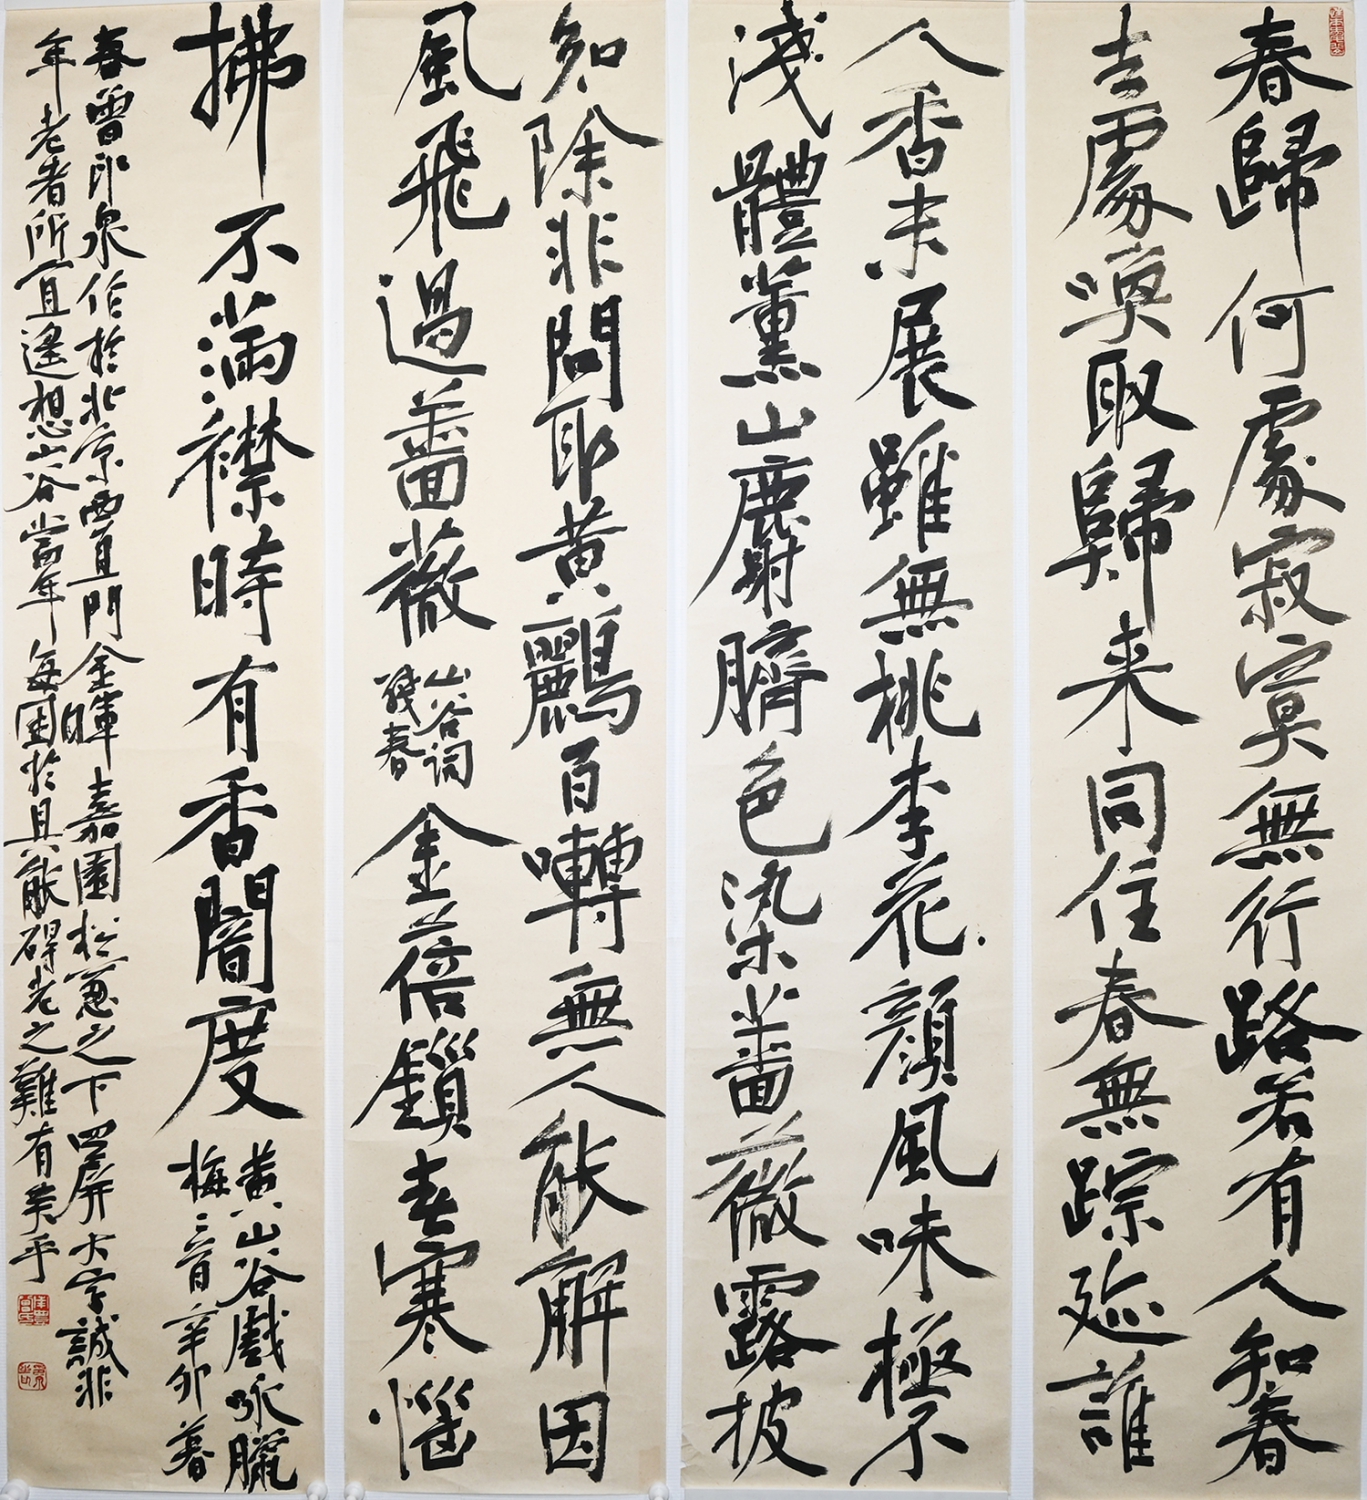 春歸何處寂寞無行路若有人知春
去處喚取歸来同住春無踪跡誰
人香未展雖無桃李花顏風味極不
淺體薰山麝臍色染薔薇露披
知除非問取黃鸝百囀無人能解因
風飛過薔薇
山谷詞
殘春
金蓓鎖春寒惱
拂不滿襟時有香闇度
黃山谷戲咏臘
梅二首辛卯暮
春曾印泉作於北京西直門金暉嘉園松窻之下四屏大字誠非
年老者所宜遙想山谷當年每困於具能碍老之難有矣乎